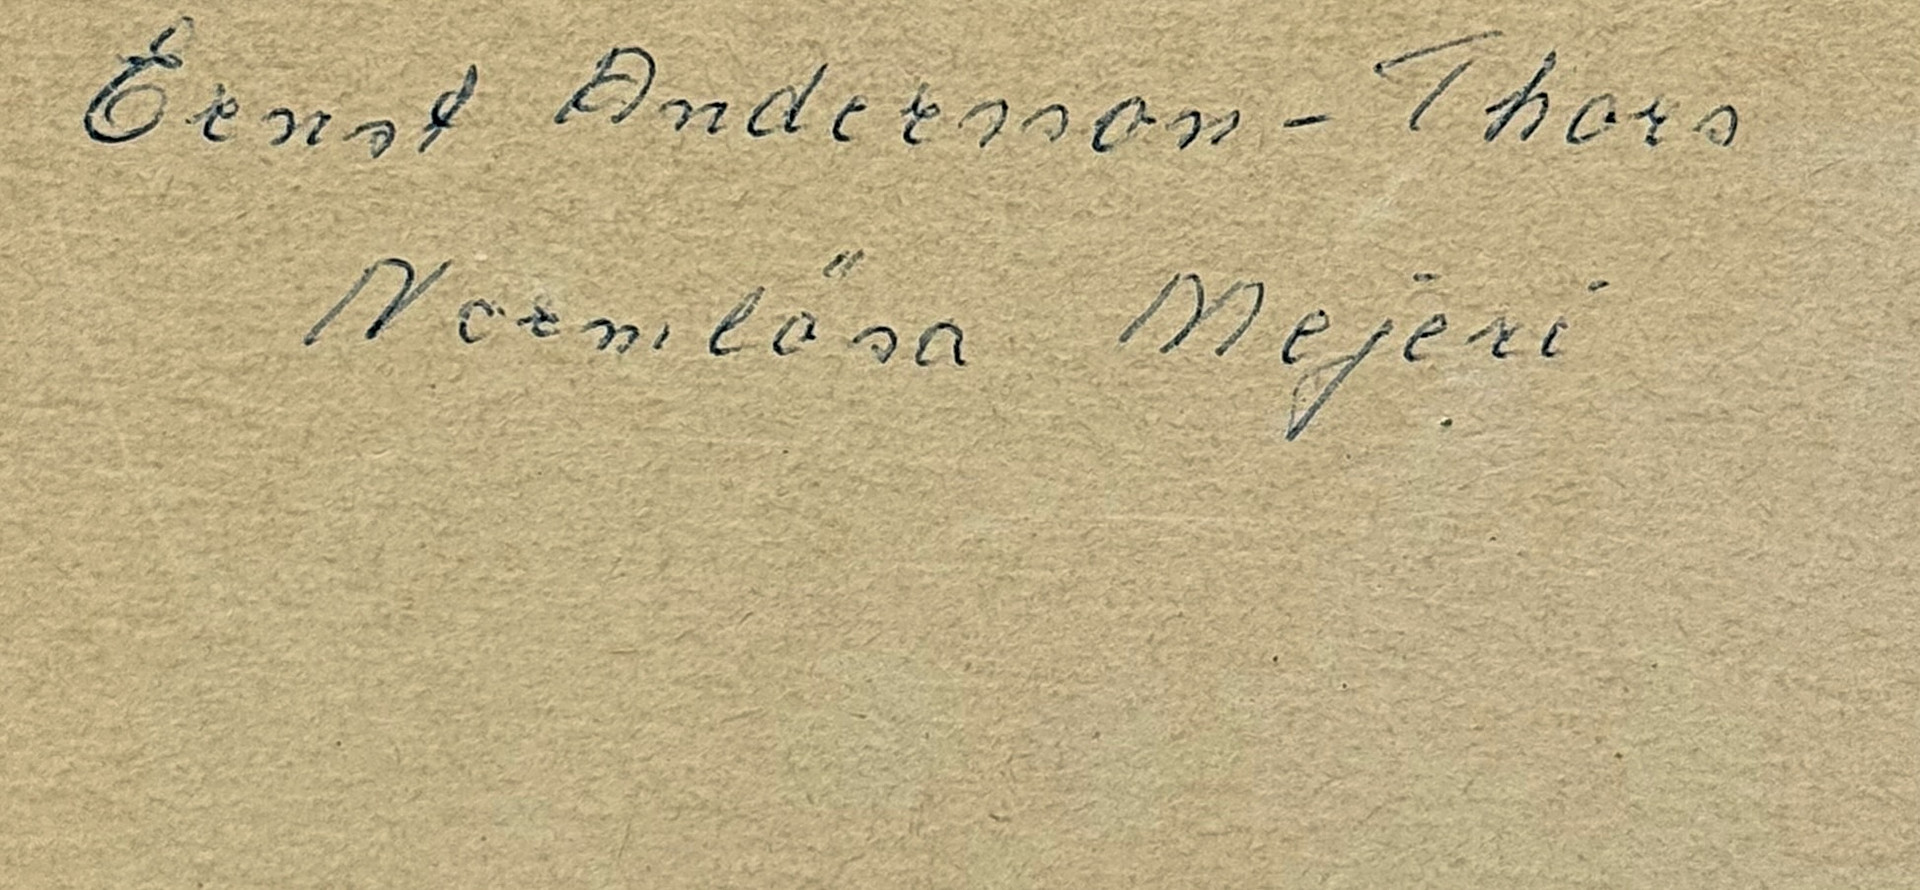 Ernst Andersson-Thors
Normlösa Mejeri